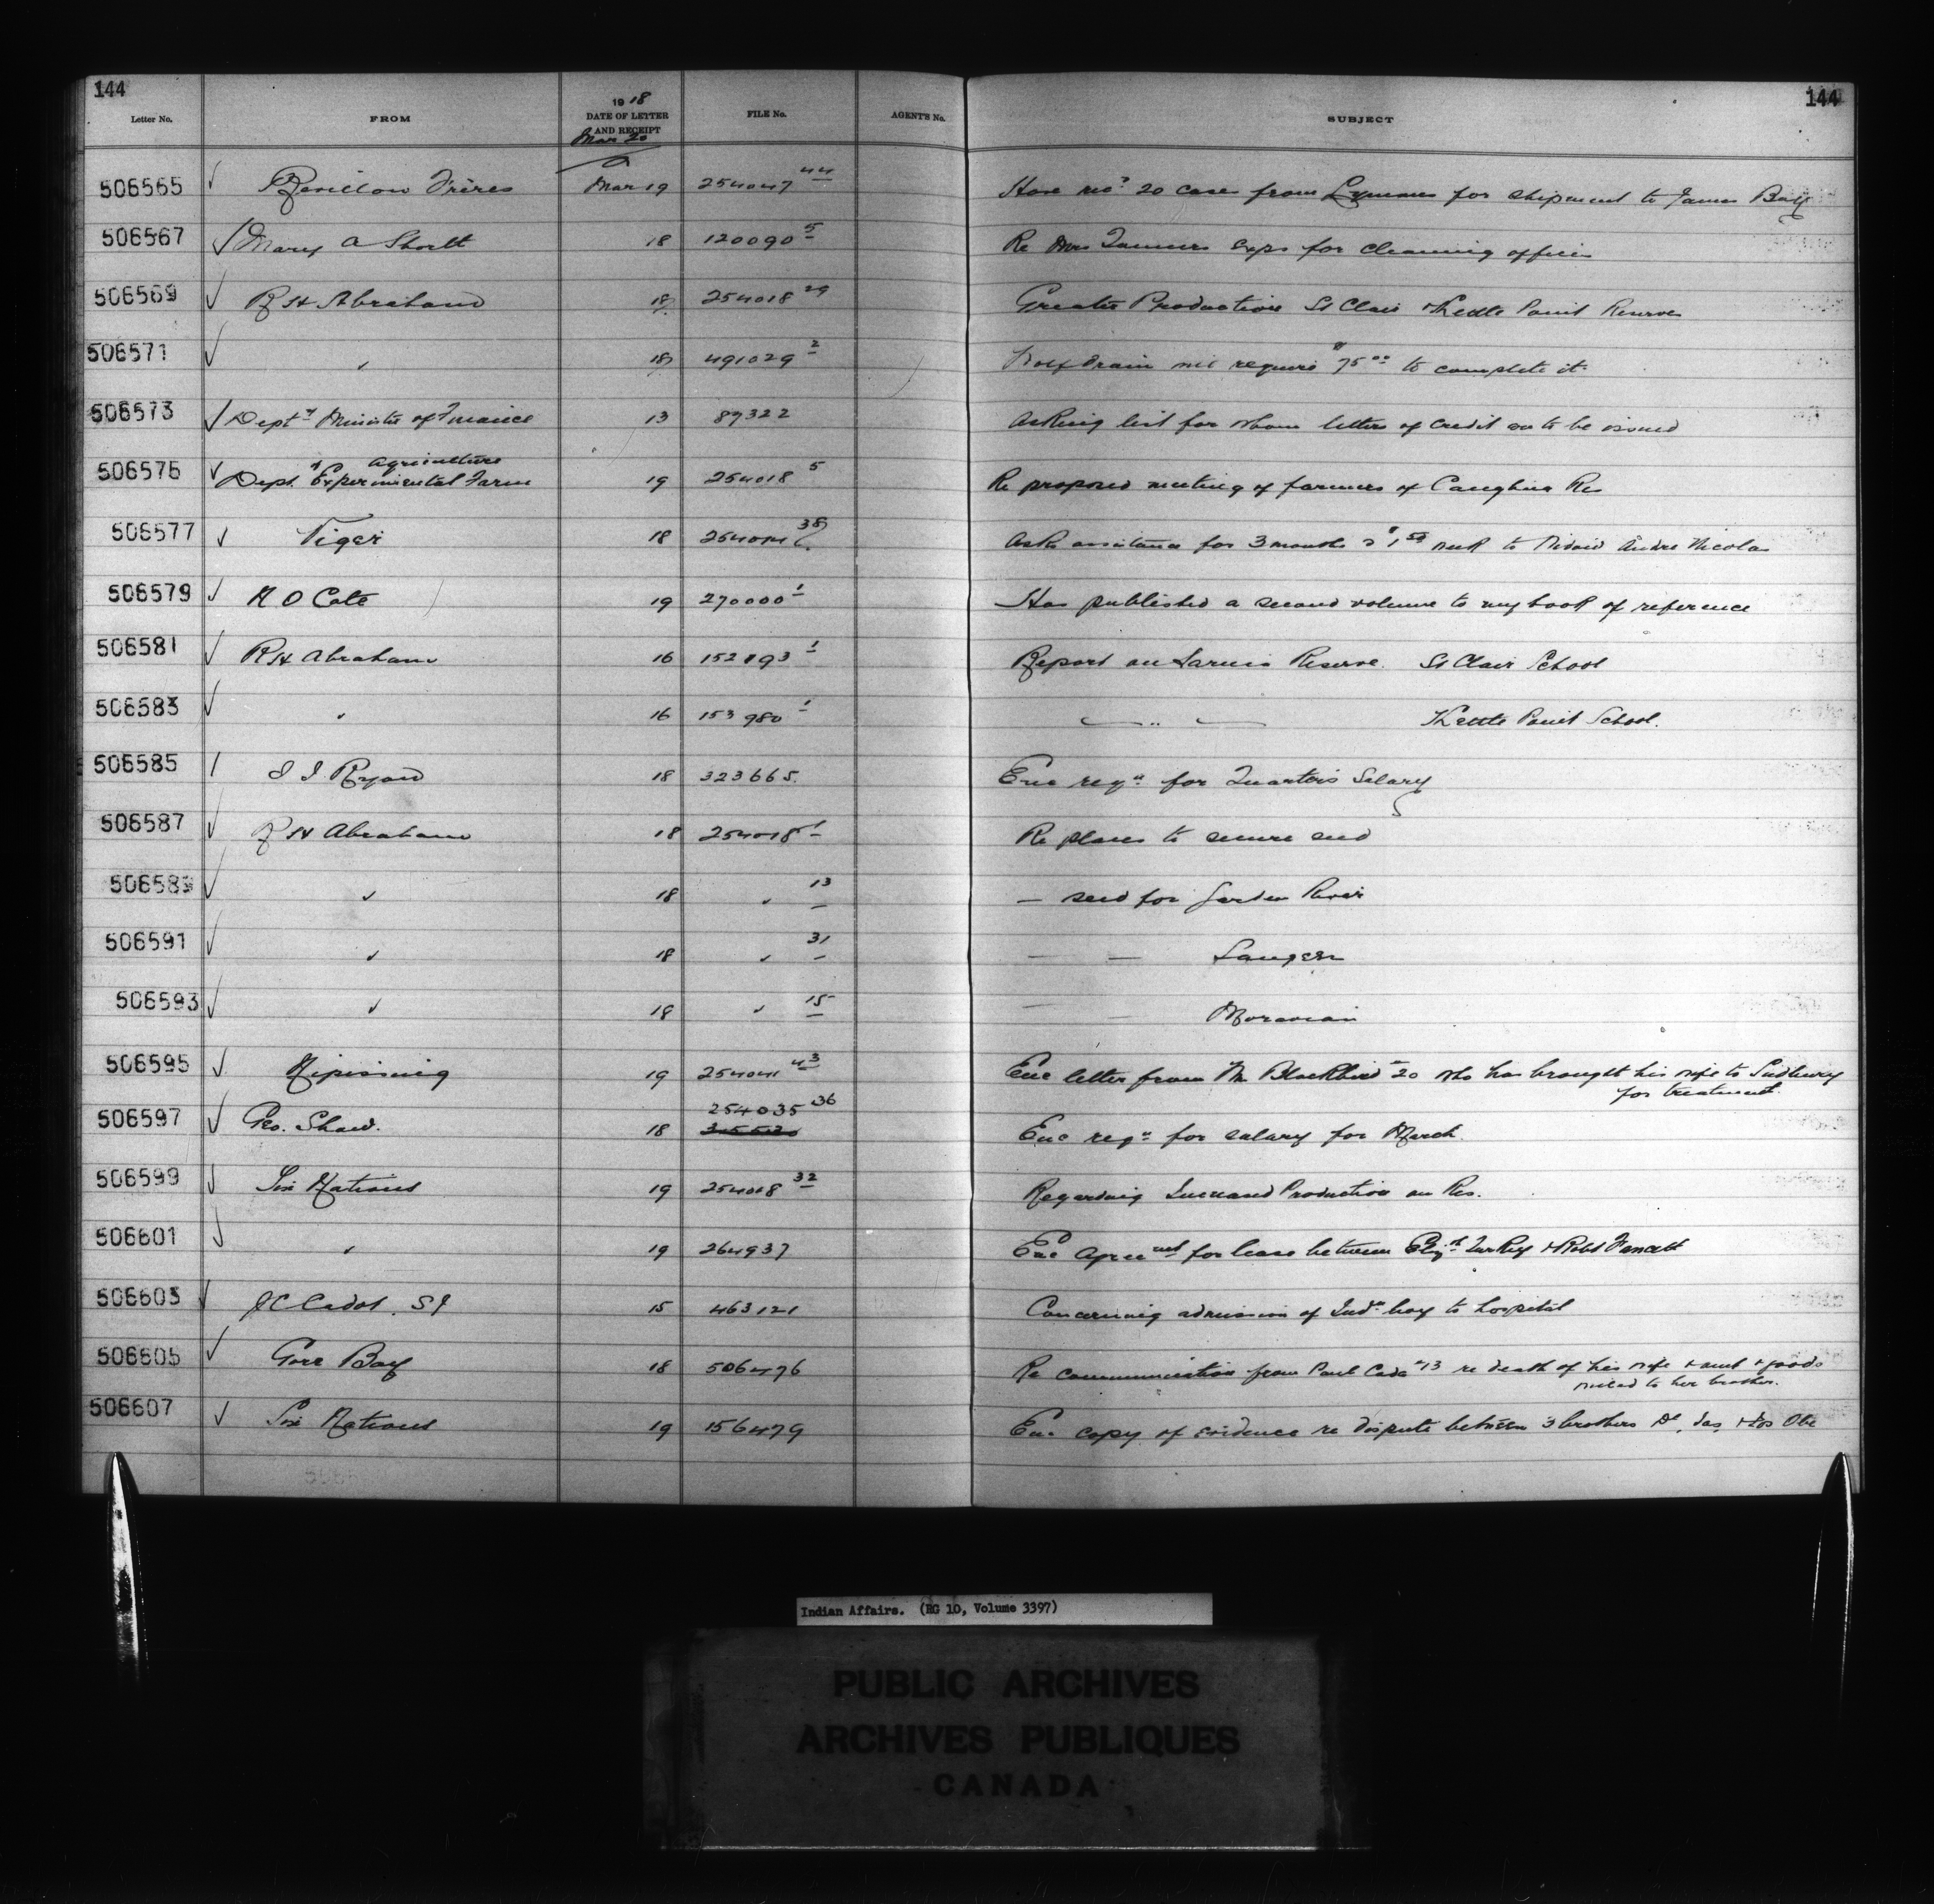 144
144
Letter No. FROM 1918 DATE OF LETTER AND RECEIPT FILE No. AGENT'S No. SUBJECT
Mar 20
506565 Revillon Frères Mar 19 254047 44 Have rec'd 20 cases from Lymans for shipment to James Bay
506567 Mary A Shortt 18 120090 5 Re Mrs Tanners exps for cleaning offices
506569 R H Abraham 18 254018 29 Greater Production St Clair & Kettle Point Reserves
506571 " 18 491029 2 drain will require $75 00 to complete it
506573 Dept'y Minister of Finance 13 87322 Asking list for whom letters of credit are to be issued
506575 Dept. of Agriculture
Experimental Farm 19 254018 5 Re proposed meeting of farmers of Caughna Res
506577 Tiger 18 38 Asks assistance for 3 months @ $1 50 week to André Nicolas
506579 N O Cote 19 270000 1 Has published a second volume to my book of reference
506581 R H Abraham 16 152193 1 Report on Sarnia Reserve. St Clair School
506583 " 16 153980 1 " Kettle Point School.
506585 Ryan 18 323665. Enc reqn for Quarters Salary
506587 R H Abraham 18 254018 1 Re plans to secure seed
506589 " 18 " 13 — seed for Garden River
506591 " 18 " 31 — — Saugeen
506593 " 18 " 15 — — Moravian
506595 Nipissing 19 254041 43 Enc letter from Blackbird 20 who has brought his wife to Sudbury
for treatment.
254035 36
506597 Geo. Shaw. 18 Enc reqn for salary for March.
506599 Six Nations 19 254018 32 Regarding Increased Production on Res.
506601 " 19 264937 Enc Agreemt for lease between Elizth Turkey & Robt Fawcett
506603 J C Cadot. S J 15 463121 Concerning admission of Indn boy to hospital
506605 Gore Bay 18 506476 Re communication from Paul 13 re death of his wife & aunt & goods
willed to her brother.
506607 Six Nations 19 156479 Enc copy of evidence re dispute between 3 brothers Jas, & Jos Obe
Indian Affairs. (RG 10, Volume 3397)
PUBLIC ARCHIVES
ARCHIVES PUBLIQUES
CANADA